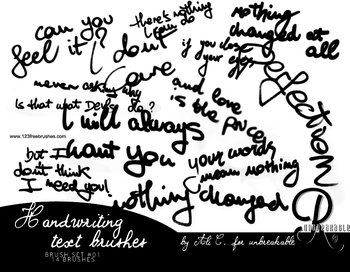 can you
feel it?
I don't
there's nothing
I can do
nothing
changed at
all
if you close
your eyes
never asking why
Is that what Devils do?
care
and love
is the price
perfection
www.123freebrushes.com
I will always
but I
don't think
I need you!
I want you
your words
mean nothing
nothing changed
unbreakable
Handwriting
text brushes
BRUSH SET #01
14 BRUSHES
by Ali C. for unbreakable